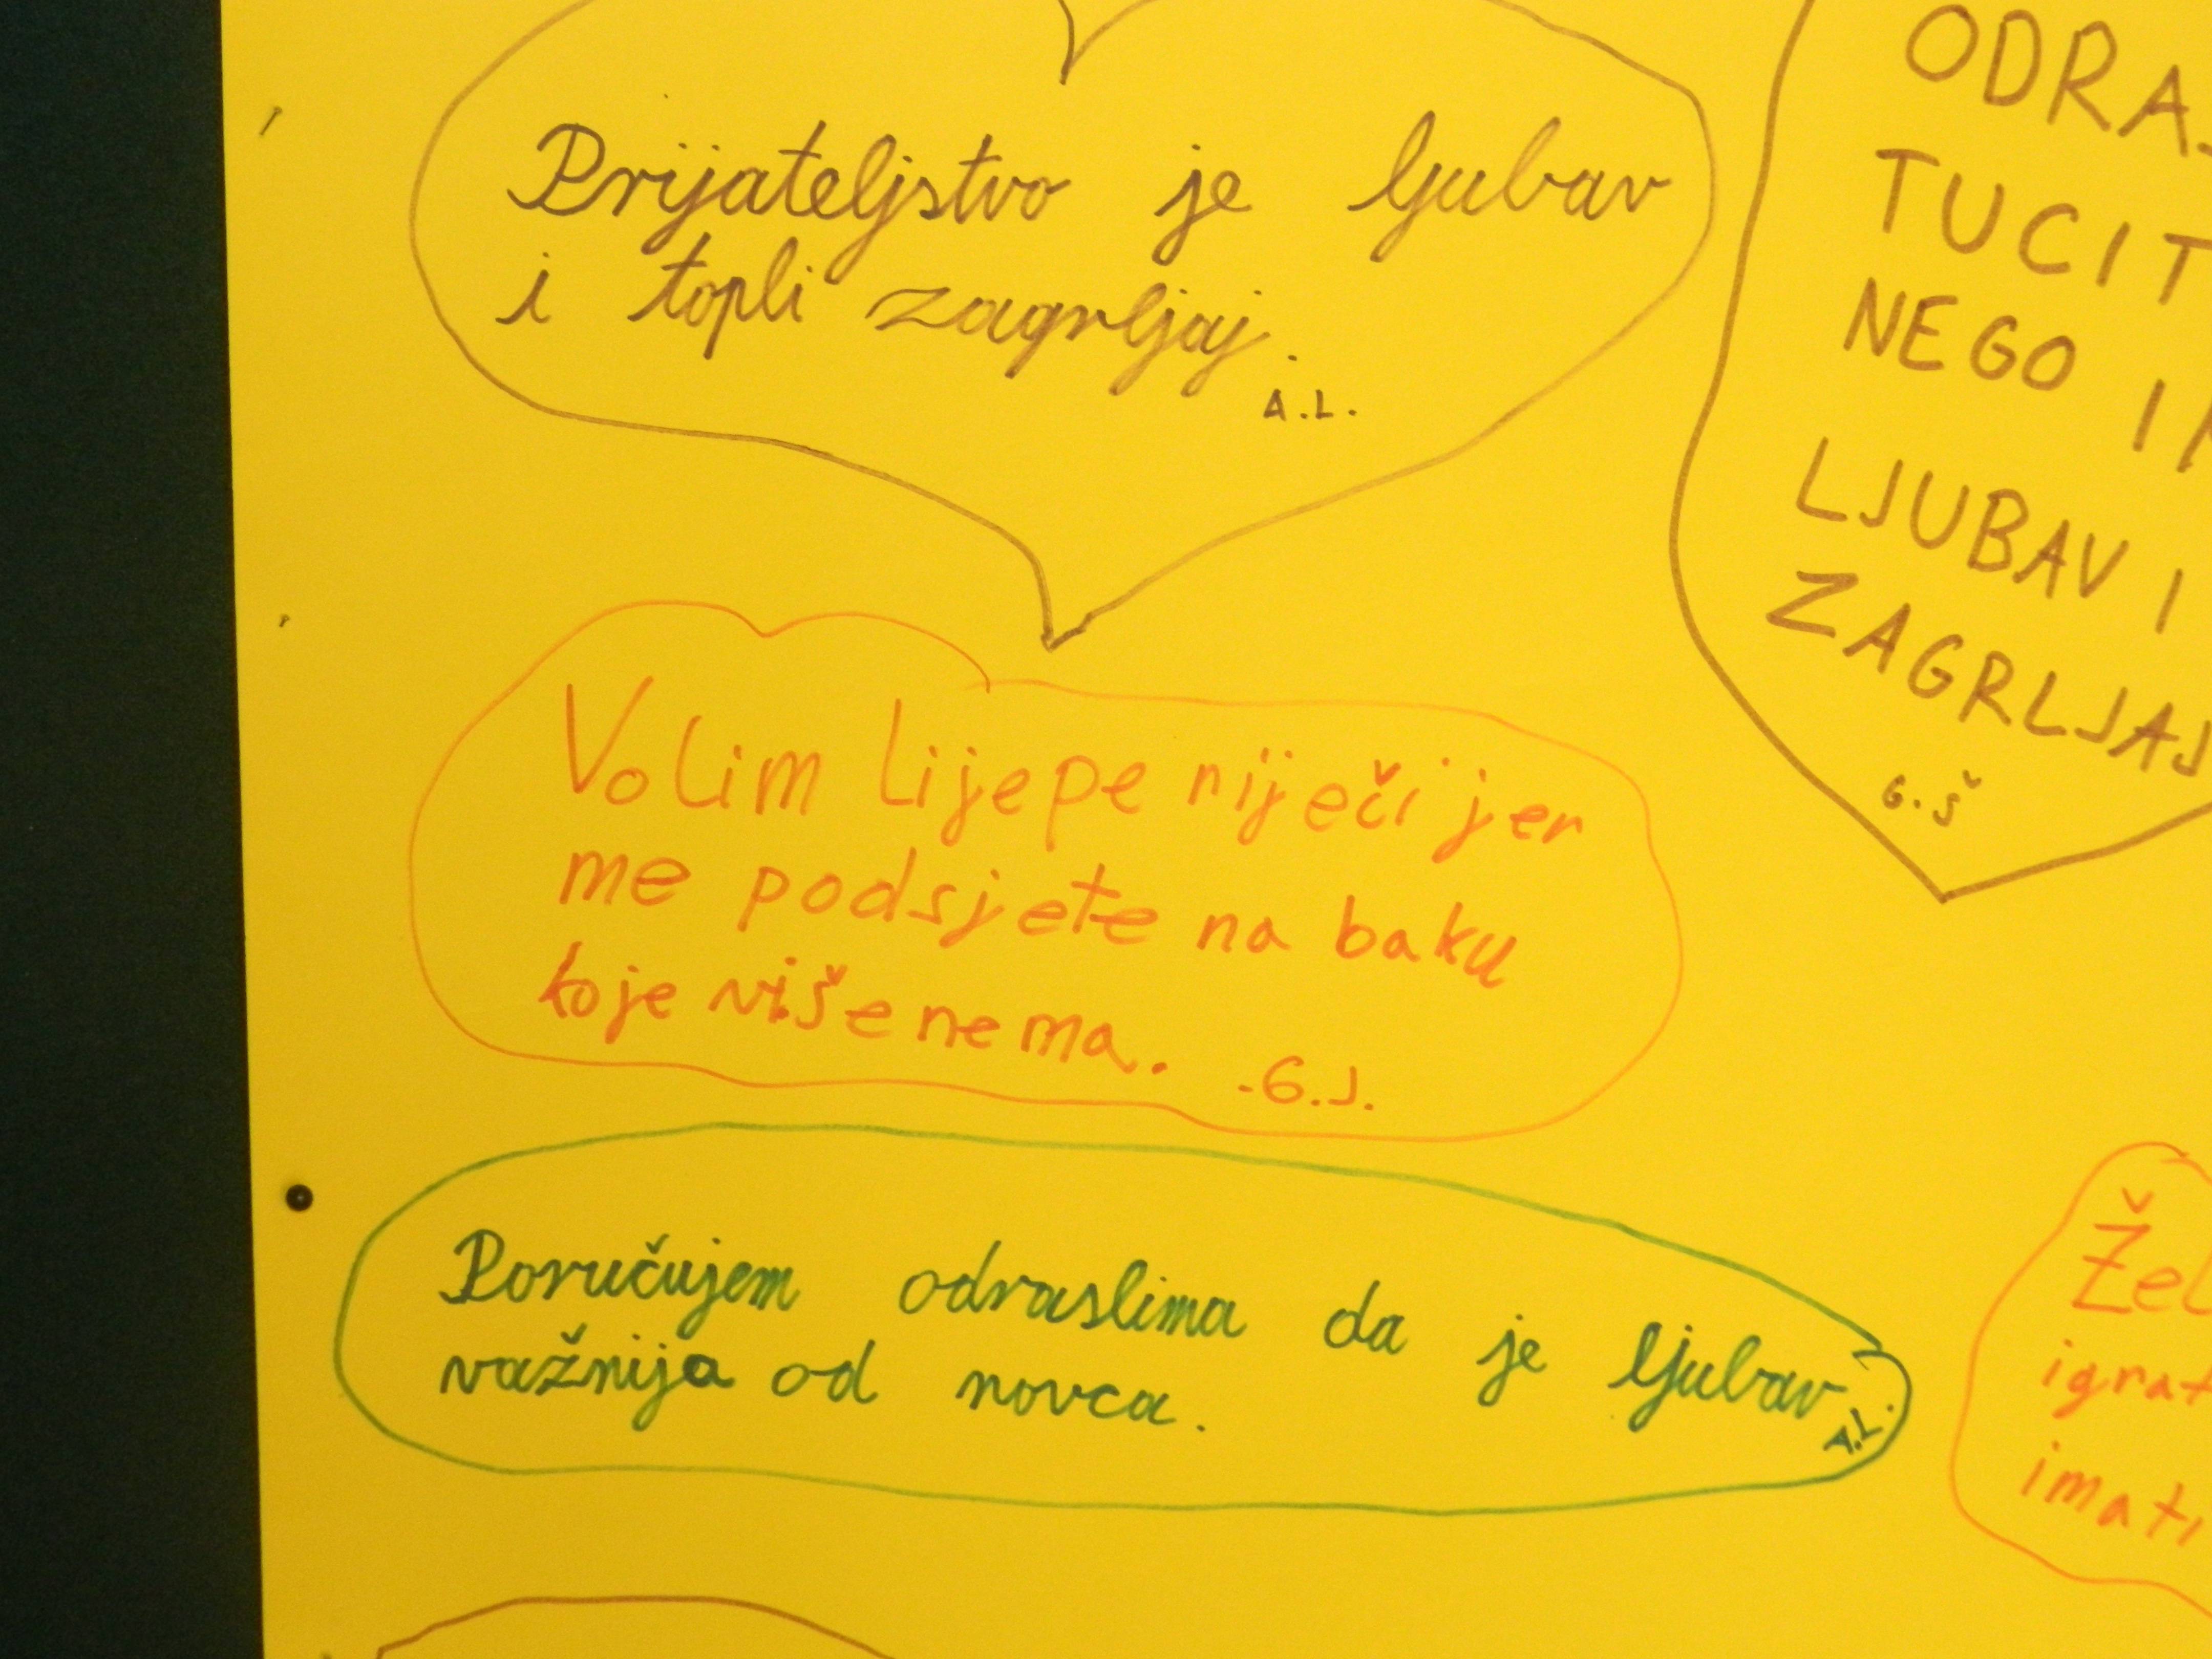 Prijateljstvo je ljubav
i topli zagrljaj.
A.L.
Volim lijepe riječi jer
me podsjete na baku
koje više nema.
-G.J.
Poručujem odraslima da je ljubav
važnija od novca.
A.L.
ODRA
TUCIT
NEGO
LJUBAV I
ZAGRLJAJ
G.Š
Žel
igrat
imati